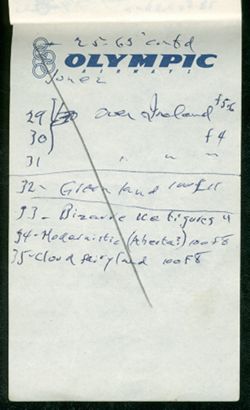 25-65 cont'd
OLYMPIC
AIRWAYS
29 over Ireland f5.6
30 f4
31 " " "
32- Greenland 100 f11
33- Bizarre
34- Modernistic (Alberta?) 100 F8
35- Cloud fairyland 100 F8